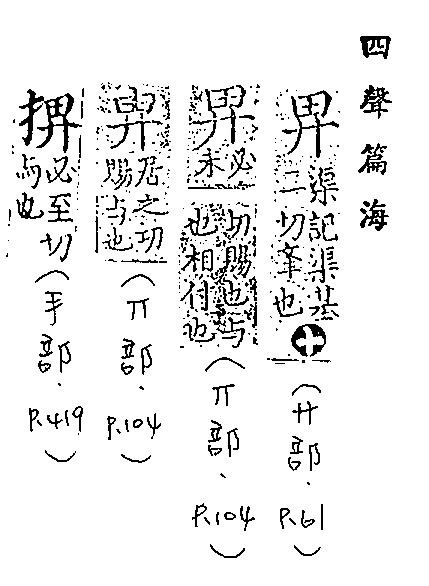 四聲篇海
畀渠記渠基二切举也
(廾部.P.61)
畀必未切賜也与也相付也
(丌部.P.104)
畀居之切賜与也
(丌部.P.104)
㨽必至切与也
(手部.P.419)